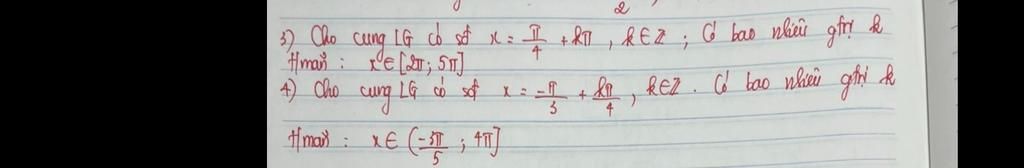 2
3) Cho cung LG có sđ x = π/4 + kπ, k ∈ Z ; Có bao nhiêu gtrị k
tmãn : x ∈ [2π; 5π]
4) Cho cung LG có sđ x = -π/3 + kπ/4, k ∈ Z . Có bao nhiêu gtrị k
tmãn : x ∈ (-3π/5 ; 4π]